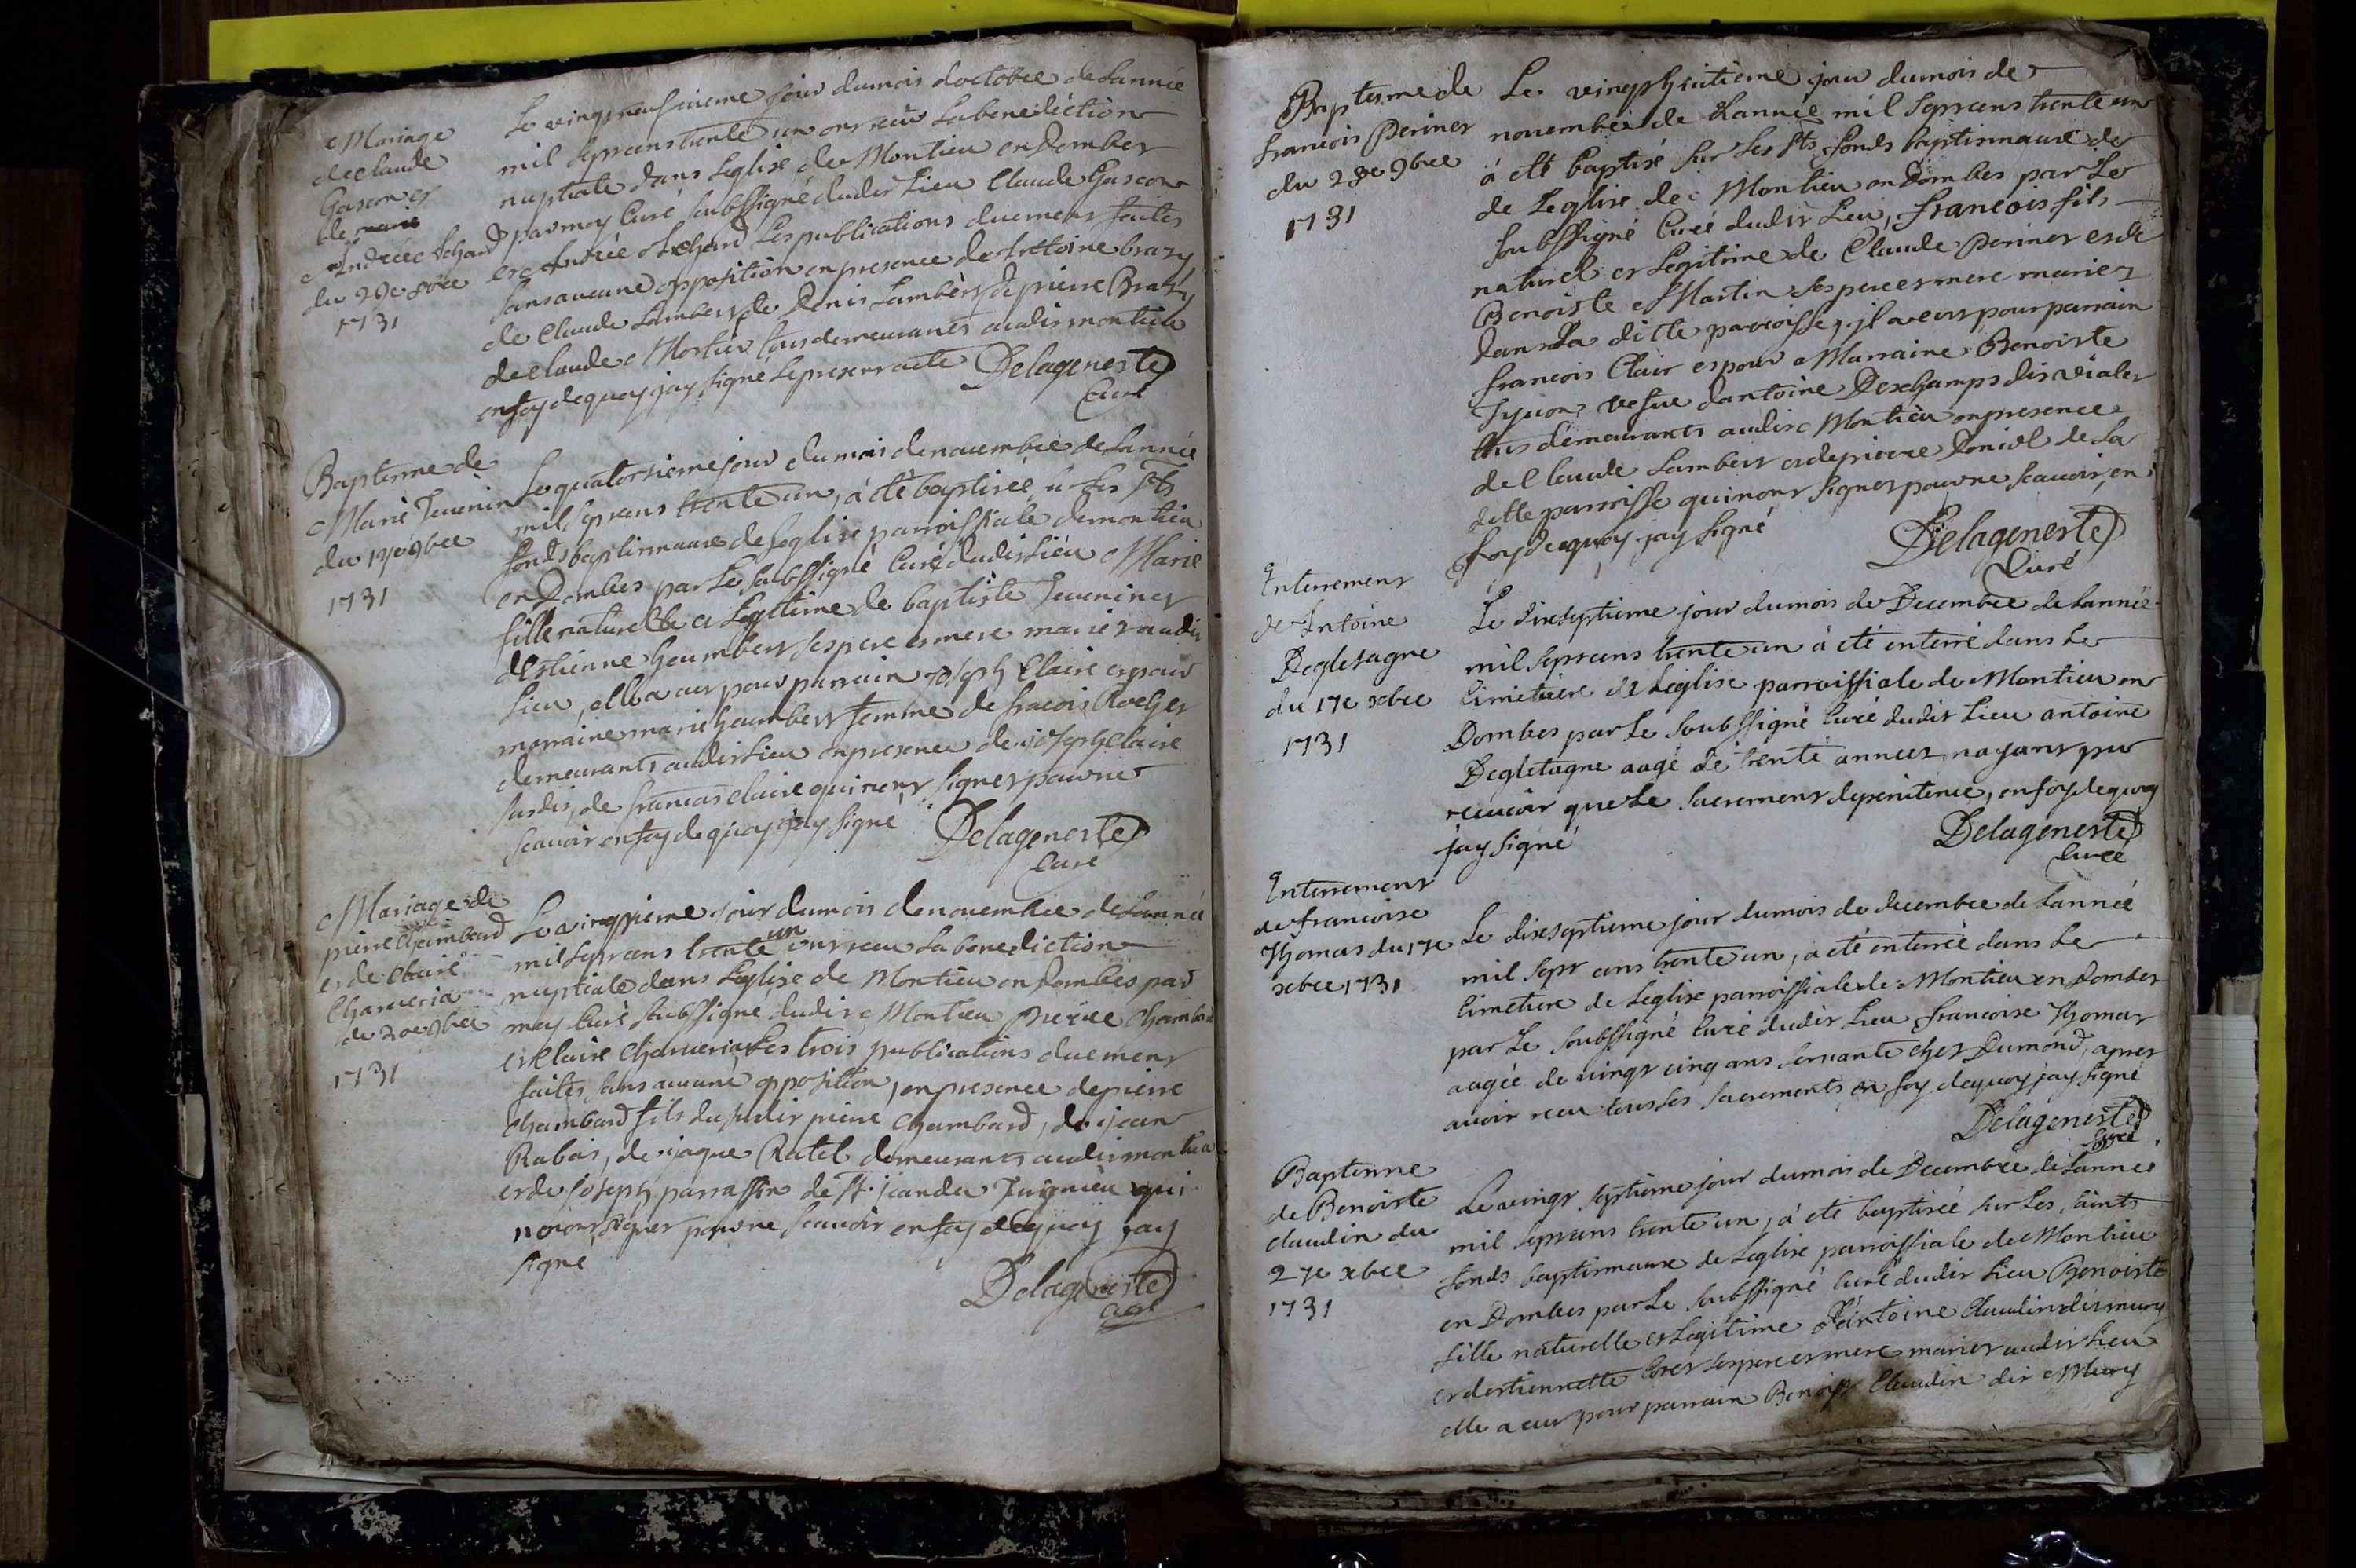 Mariage
de claude
Gascon et
de
Andrée Echard
du 29e 8bre
1731
Le vingt neufvieme jour du mois doctobre de Lannée
mil sept cens trente un ont reçu La benediction
nuptiale dans Leglise de Montieu en Dombes
par moy Curé soubssigné dudit Lieu Claude Gascon
et Andrée Echard Les publications duement faites
sans aucune opposition en presence de Antoine brazy
de Claude Lambert de Denis Lambert de prierre Brazy
de claude Mortier tous demeurants audit montieu
en foy de quoy jay signé Le present acte Delageneste
Curé
Baptesme de
Marie Tevenin
du 14e 9bre
1731
Le quatorzieme jour du mois de novembre de Lannée
mil sept cens trente un, à été baptisée sur les sts
fonds baptismaux de Leglise parroissiale de montieu
en Dombes par Le soubssigné Curé dudit Lieu Marie
fille naturelle et Legitime de baptiste Tevenin et
destienne heumbert ses pere et mere mariez audit
Lieu, elle a eut pour parrain joseph Claire et pour
marraine marie heumbert femme de fracois Rocher
demeurants audit Lieu en presence de joseph claire
susdit, de francois claire qui nont signer pour ne
scavoir en foy de quoy jay signé Delageneste
Curé
Mariage de
pierre Chambard
et de Claire
Charveria
du 20e 9bre
1731
Le vingtieme jour du mois de novembre de Lannée
mil sept cens trente un ont receu La benediction
nuptiale dans Leglise de Montieu en Dombes par
moy Curé soubssigné dudit Montieu prierre Chambard
et Claire Charveria Les trois publications duement
faites, sans aucune opposition, en presence de pierre
Chambard fils du susdit pierre Chambard, de jean
Rabais, de jaque Ratel demeurants audit montieu
et de joseph parrassin de st. jean de Turigneu qui
nont signer pour ne scavoir en foy de quoy jay
signé
Delageneste
Curé
Baptesme de
francois Perinet
du 28e 9bre
1731
Le vingt huitieme jour du mois de
novembre de Lannée mil sept cens trente un
à été baptisé sur Les sts fonds baptismaux de
de Leglise de Montieu en Dombes par Le
soubssigné Curé dudit Lieu, francois fils
naturel et Legitime de Claude Perinet et de
Benoiste Martin ses pere et mere mariez
dans La ditte parroisse, il a eut pour parrain
francois Clair et pour Marraine Benoiste
Tyvon vefve dantoine Deschamps dit vialet
tous demeurants audit Montieu en presence
de Claude Lambert et de prierre Doniol de La
ditte parroisse qui nont signer pour ne scavoir, en
foy de quoy jay signé
Delageneste
Curé
Enterrement
de Antoine
Degletagne
du 17e xbre
1731
Le dixseptieme jour du mois de Decembre de Lannée
mil sept cens trente un à été enterré dans Le
Cimetiere de Leglise parroissiale de Montieu en
Dombes par Le soubssigné Curé dudit Lieu antoine
Degletagne aagé de trente années nayant pu
recevoir que Le sacrement de penitence, en foy de quoy
jay signé
Delageneste
Curé
Enterrement
de francoise
Thomas du 17e
xbre 1731
Le dixseptieme jour du mois de decembre de Lannée
mil sept cens trente un, a été enterrée dans Le
Cimetiere de Leglise parroissiale de Montieu en Dombes
par Le soubssigné Curé dudit Lieu francoise Thomas
aagée de vingt cinq ans servante chez Dumond, apres
avoir receu tous Les sacrements en foy de quoy jay signé
Delageneste
Curé
Baptesme
de Benoiste
claudin du
27e xbre
1731
Le vingt septieme jour du mois de Decembre de Lannée
mil sept cens trente un, à été baptisée sur Les saints
fonds baptismaux de Leglise parroissiale de Montieu
en Dombes par Le soubssigné Curé dudit Lieu Benoiste
fille naturelle et Legitime d'Antoine Claudin dit mury
et destiennette ses pere et mere mariez audit Lieu
elle a eut pour parrain Benoist Claudin dit Mury